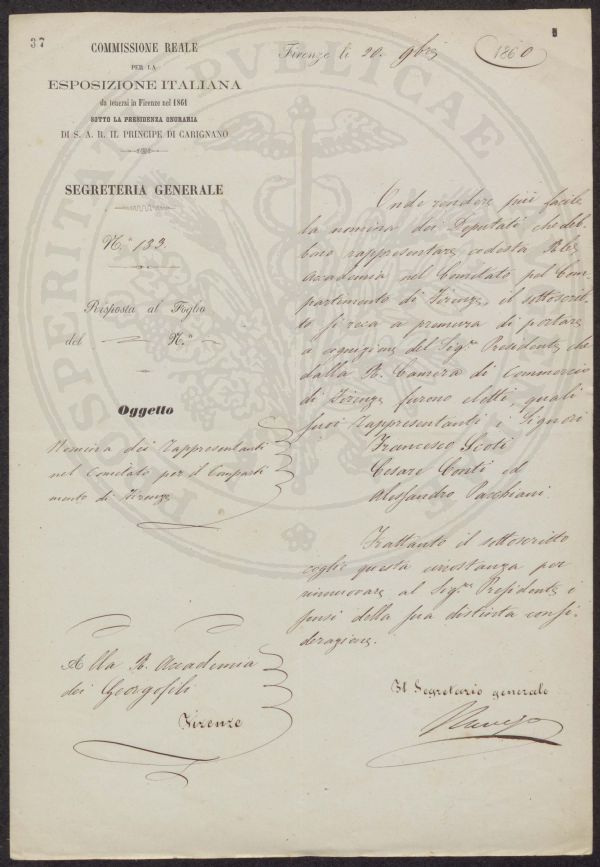 37
COMMISSIONE REALE
PER LA
ESPOSIZIONE ITALIANA
da tenersi in Firenze nel 1861
SOTTO LA PRESIDENZA ONORARIA
DI S. A. R. IL PRINCIPE DI CARIGNANO
SEGRETERIA GENERALE
N.º 133.
Risposta al Foglio
del N.º
Oggetto
Nomina dei Rappresentanti
nel Comitato per il Comparti
mento di Firenze
Alla R. Accademia
dei Georgofili
Firenze
Firenze li 20. 9bre 1860
Onde rendere più facile
la nomina dei Deputati che deb-
bono rappresentare codesta Rle
Accademia nel Comitato pel Com-
partimento di Firenze, il sottoscrit-
to si reca a premura di portare
a cognizione del Sigre Presidente che
dalla R. Camera di Commercio
di Firenze furono eletti quali
suoi Rappresentanti i Signori
Francesco Scoti
Cesare Conti ed
Alessandro Paschiani.
Frattanto il sottoscritto
coglie questa circostanza per
rinnuovare al Sigre Presidente i
sensi della sua distinta consi-
derazione.
Il Segretario generale
PROSPERITATI PVBLICAE